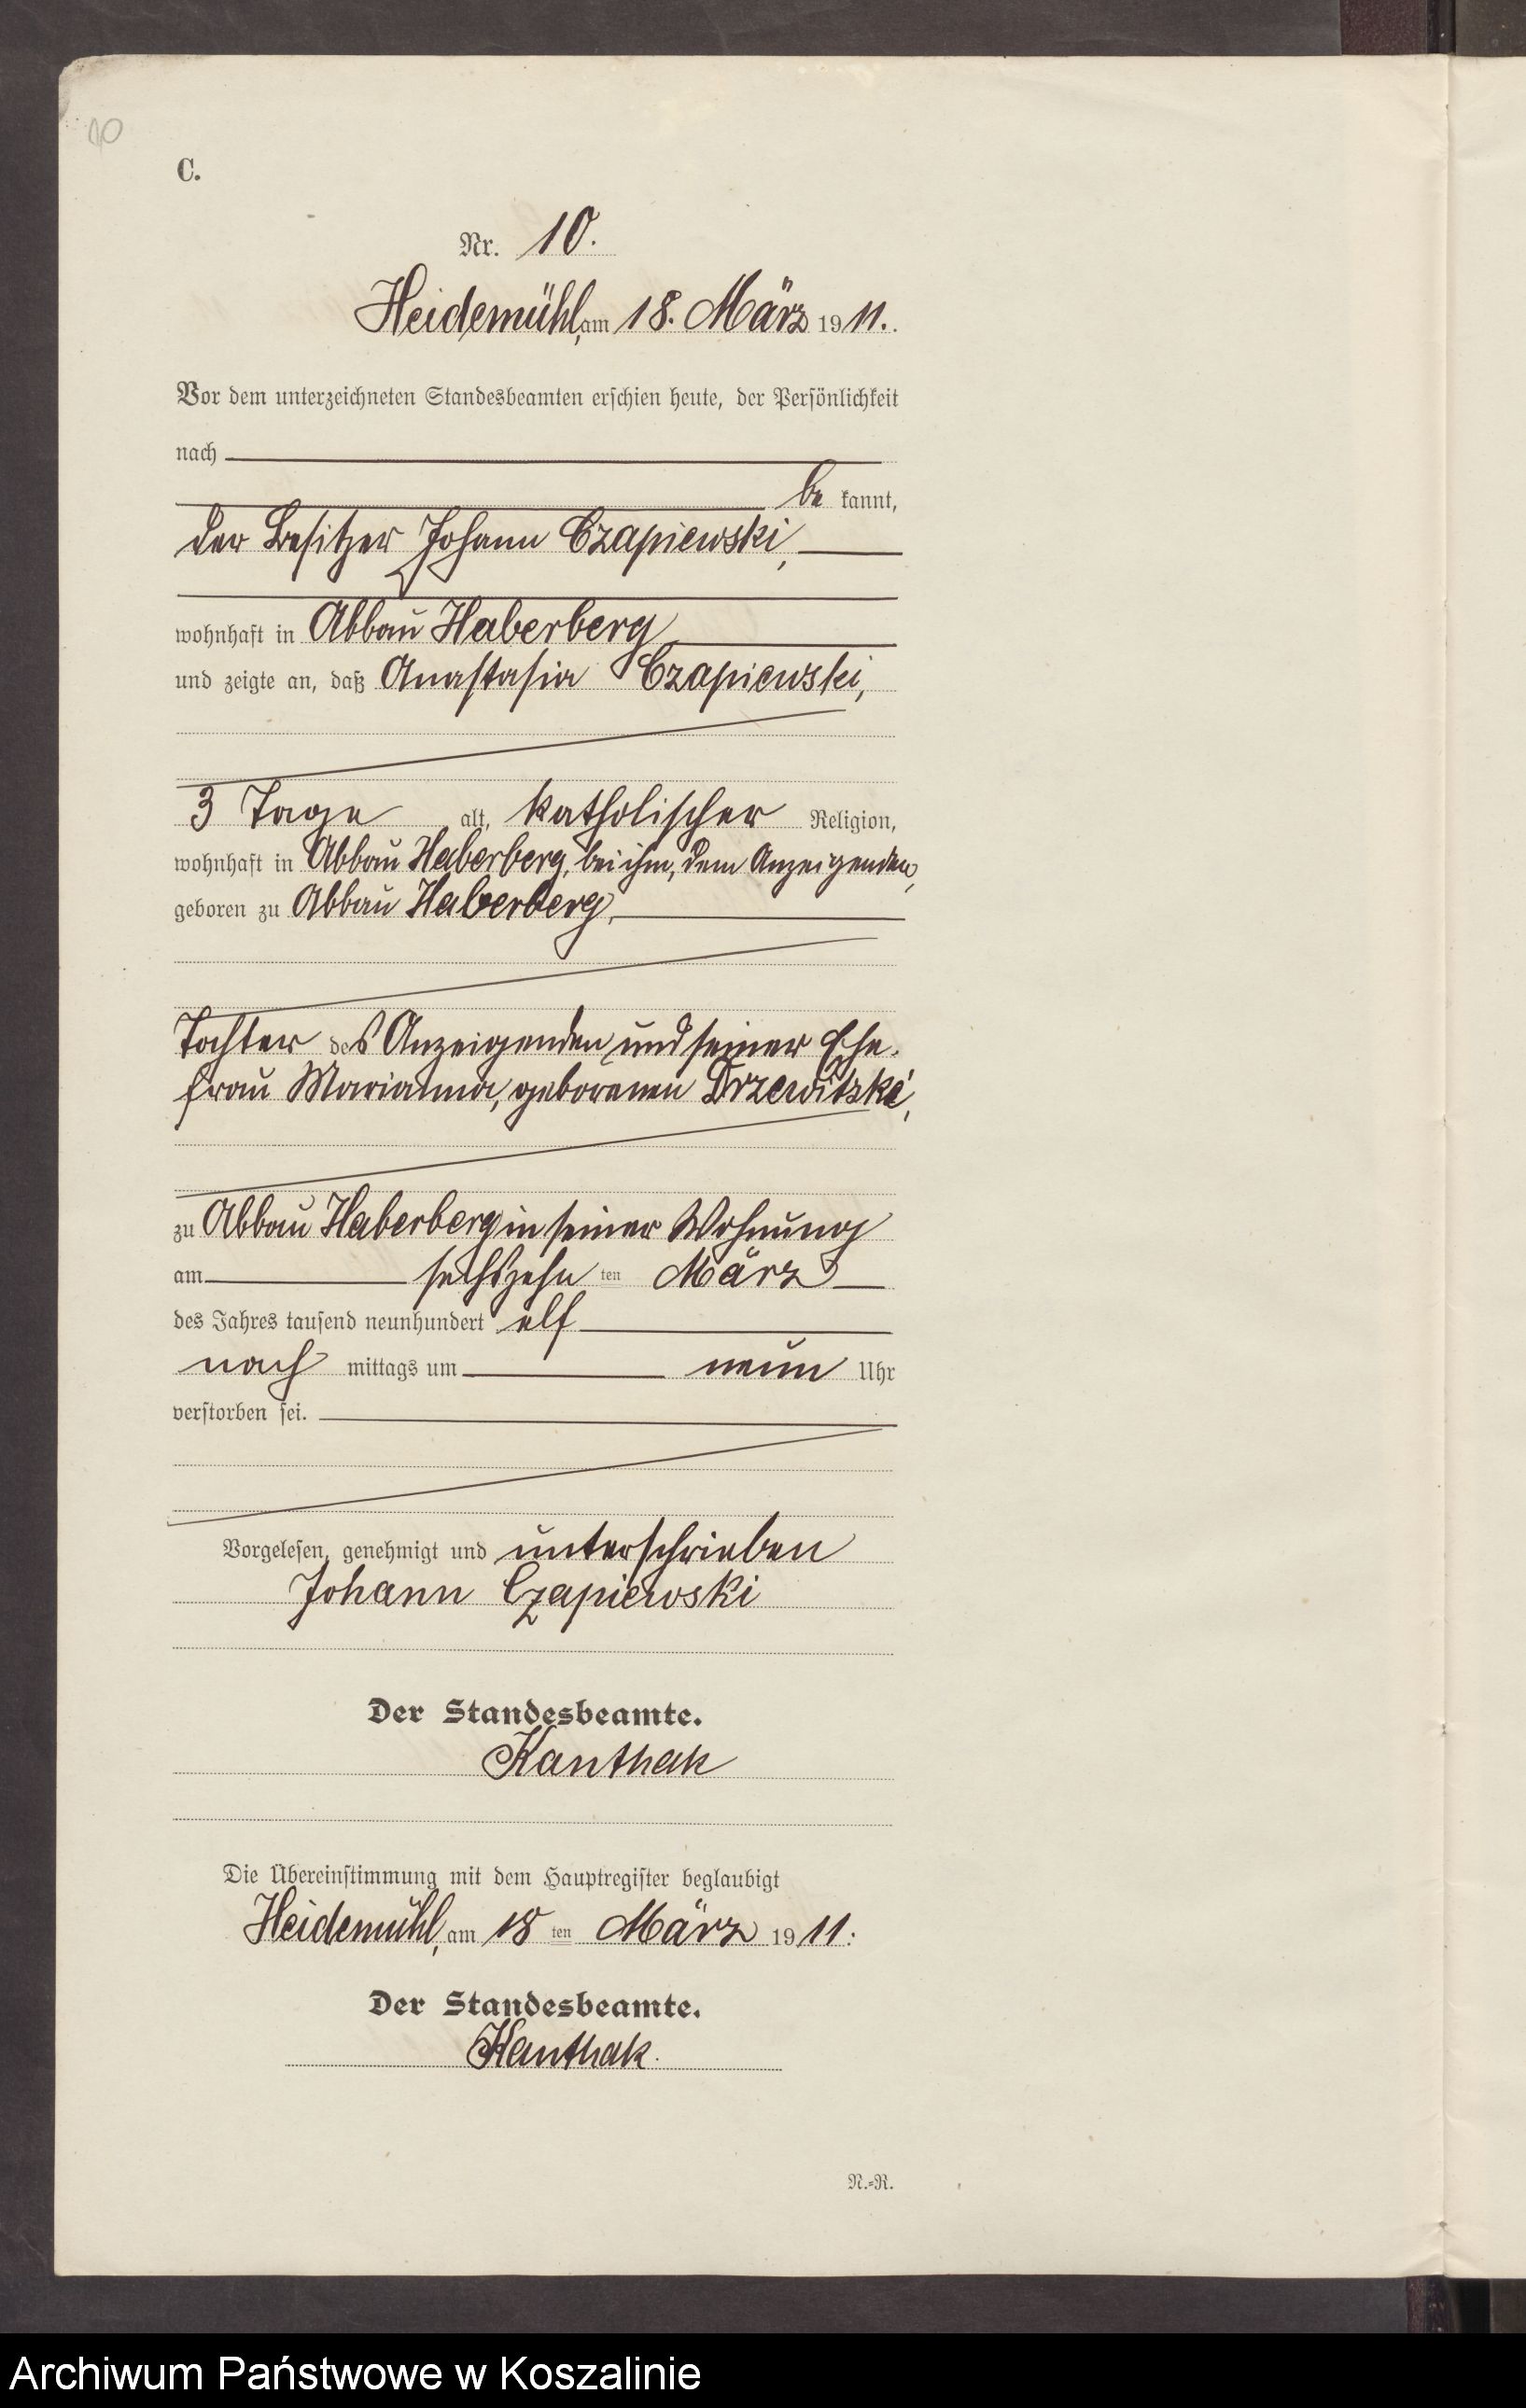 10
C.
Nr. 10.
Heidemühl, am 18. März 1911.
Vor dem unterzeichneten Standesbeamten erschien heute, der Persönlichkeit
nach
be kannt,
der Besitzer Johann Czapiewski,
wohnhaft in Abbau Haberberg
und zeigte an, daß Anastasia Czapiewski,
3 Tage alt, katholischer Religion,
wohnhaft in Abbau Haberberg, bei ihm, dem Anzeigenden,
geboren zu Abbau Haberberg,
Tochter des Anzeigenden und seiner Ehe-
frau Marianna, geborenen Drzewitzke,
zu Abbau Haberberg in seiner Wohnung
am sechszehn ten März
des Jahres tausend neunhundert elf
nach mittags um neun Uhr
verstorben sei.
Vorgelesen, genehmigt und unterschrieben
Johann Czapiewski
Der Standesbeamte.
Kanthak
Die Übereinstimmung mit dem Hauptregister beglaubigt
Heidemühl, am 18 ten März 1911.
Der Standesbeamte.
Kanthak.
N.=R.
Archiwum Państwowe w Koszalinie